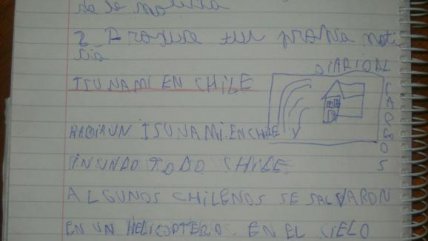 de la noticia
2. Produce tu propia noti
cia
DIARIO
TSUNAMI EN CHILE
HABIA UN TSUNAMI EN CHILE
INUNDO TODO CHILE
ALGUNOS CHILENOS SE SALVARON
EN UN HELICOPTERO EN EL CIELO